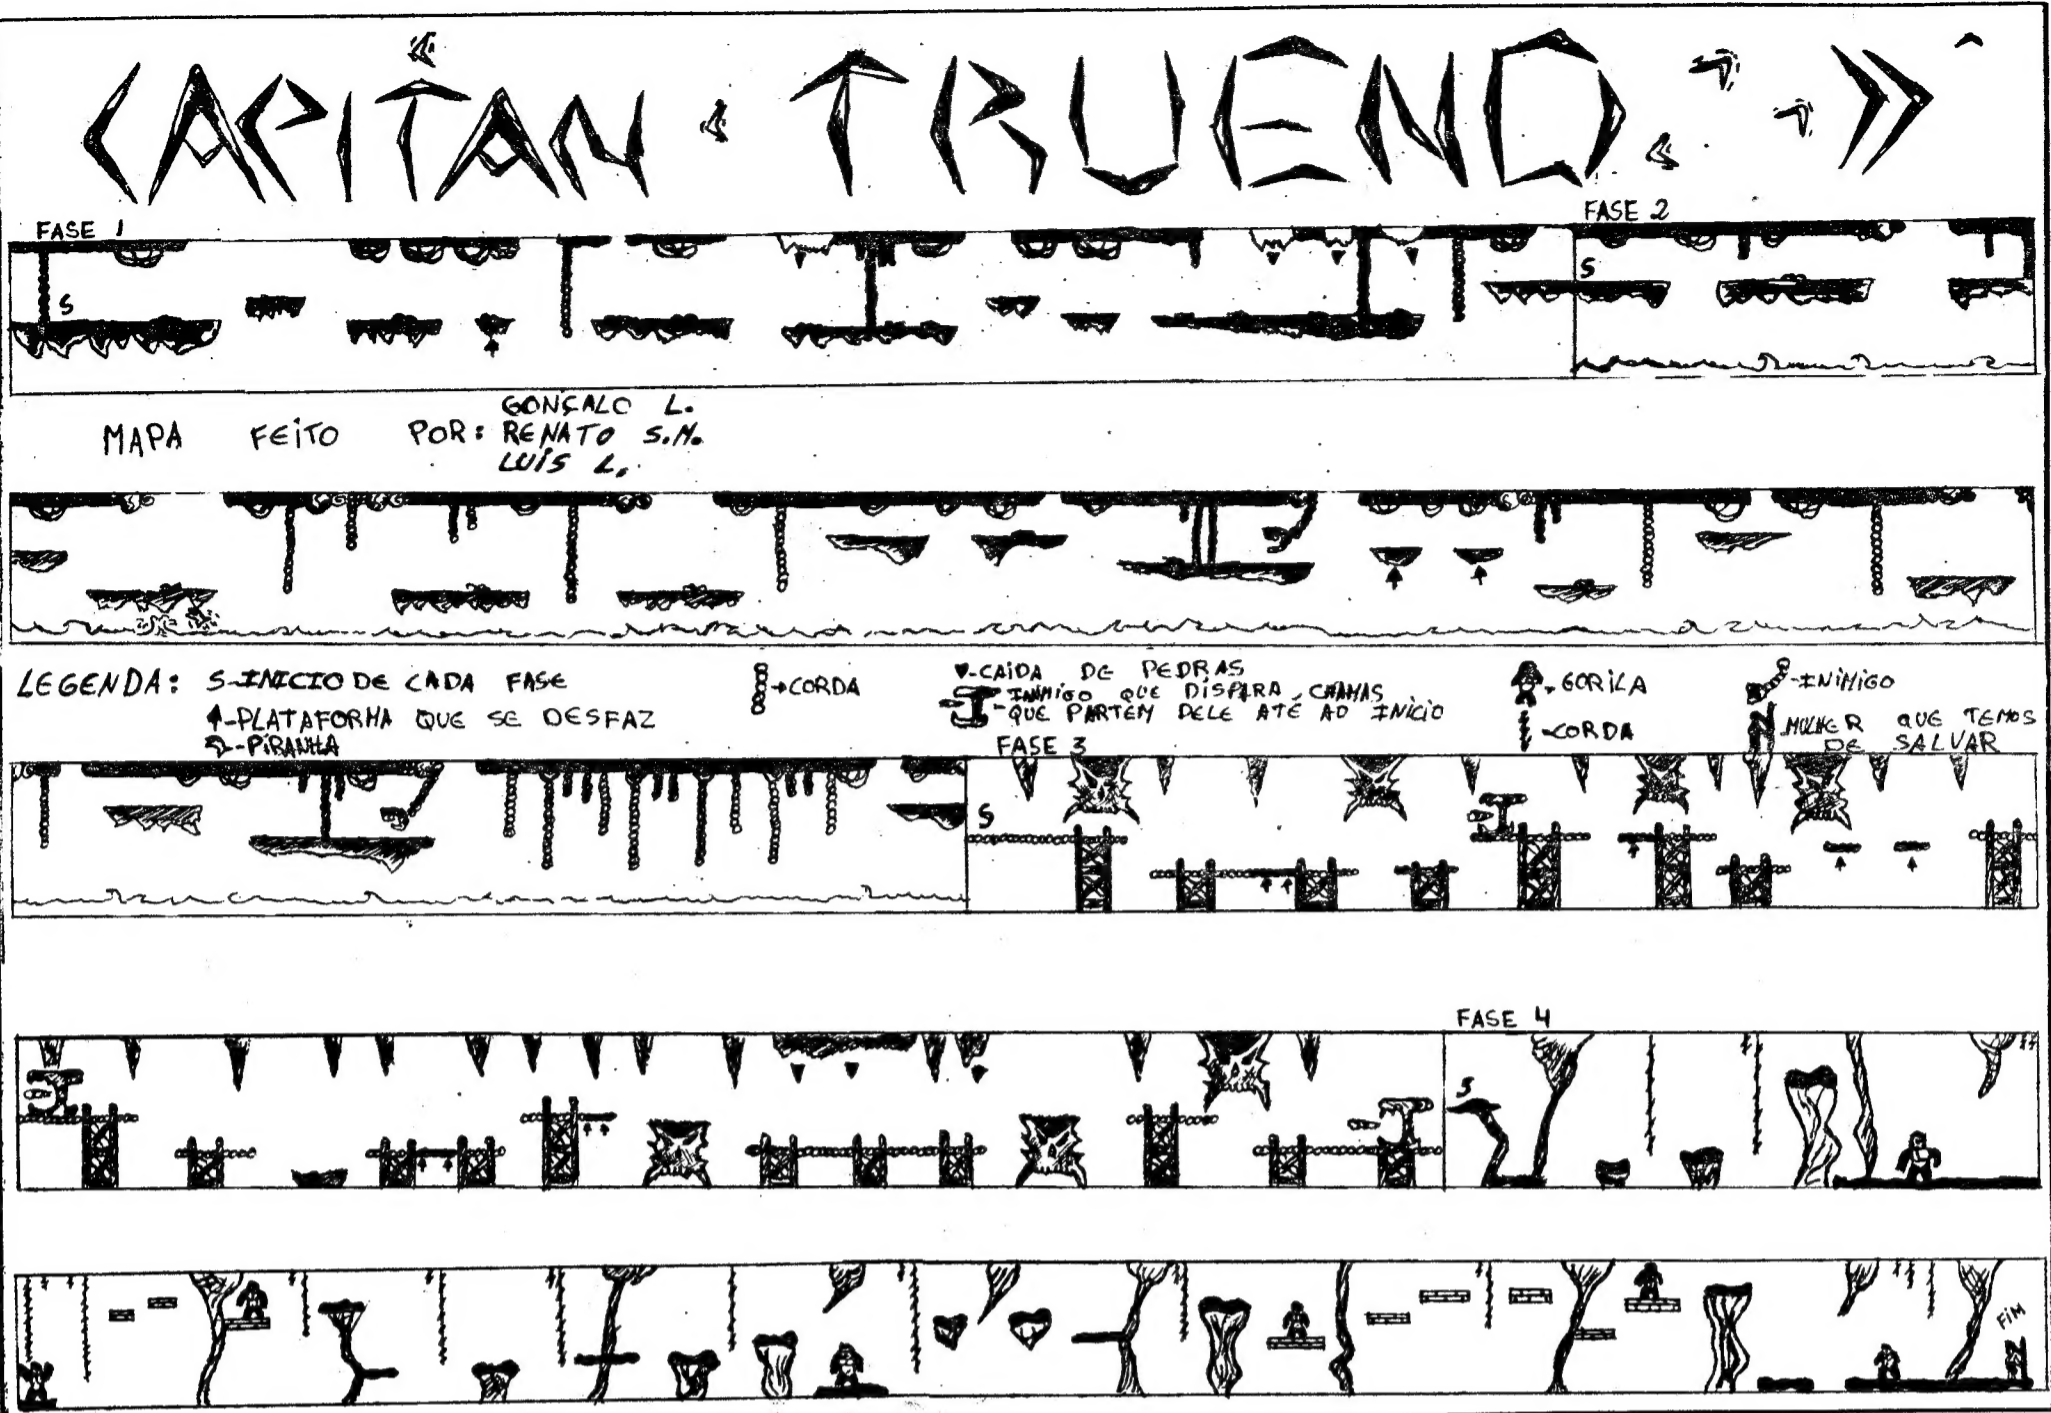 CAPITAN TRUENO
FASE 1
FASE 2
S
S
MAPA FEITO POR: GONÇALO L.
RENATO S.M.
LUIS L.
LEGENDA: S-INICIO DE CADA FASE
-PLATAFORMA QUE SE DESFAZ
-PIRANHA
CORDA
-CAIDA DE PEDRAS
INIMIGO QUE DISPARA CHAMAS
QUE PARTEM DELE ATÉ AO INÍCIO
-GORILA
-CORDA
-INIMIGO
MULHER QUE TEMOS
DE SALVAR
FASE 3
S
FASE 4
S
FIM